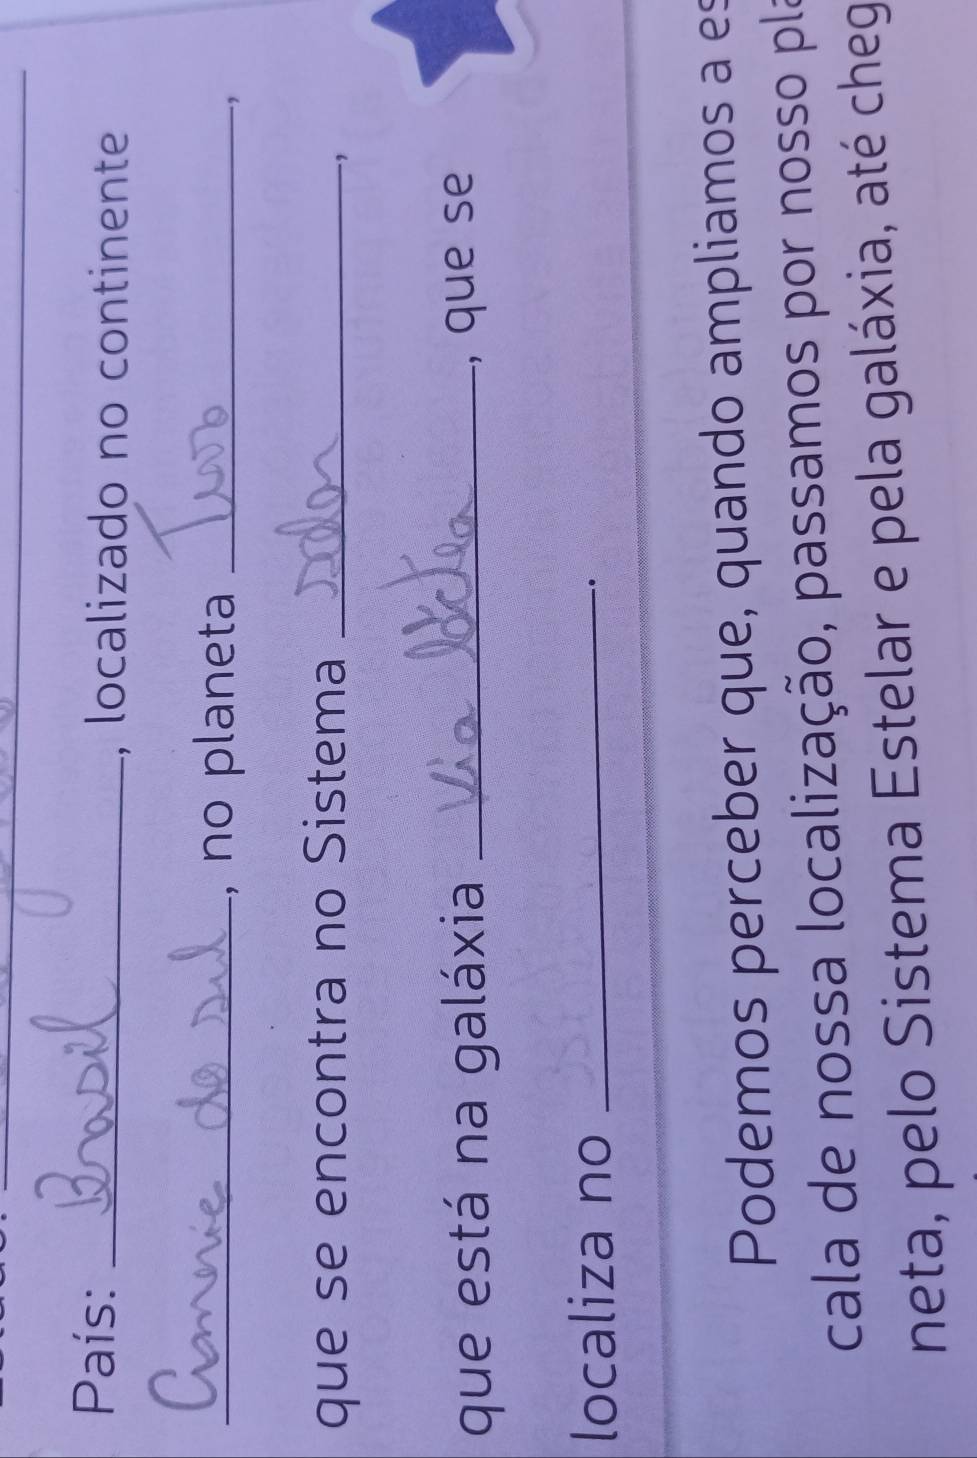 País: Brasil, localizado no continente
America do sul, no planeta Terra,
que se encontra no Sistema Solar,
que está na galáxia Via láctea, que se
localiza no .
Podemos perceber que, quando ampliamos a es
cala de nossa localização, passamos por nosso pla
neta, pelo Sistema Estelar e pela galáxia, até cheg